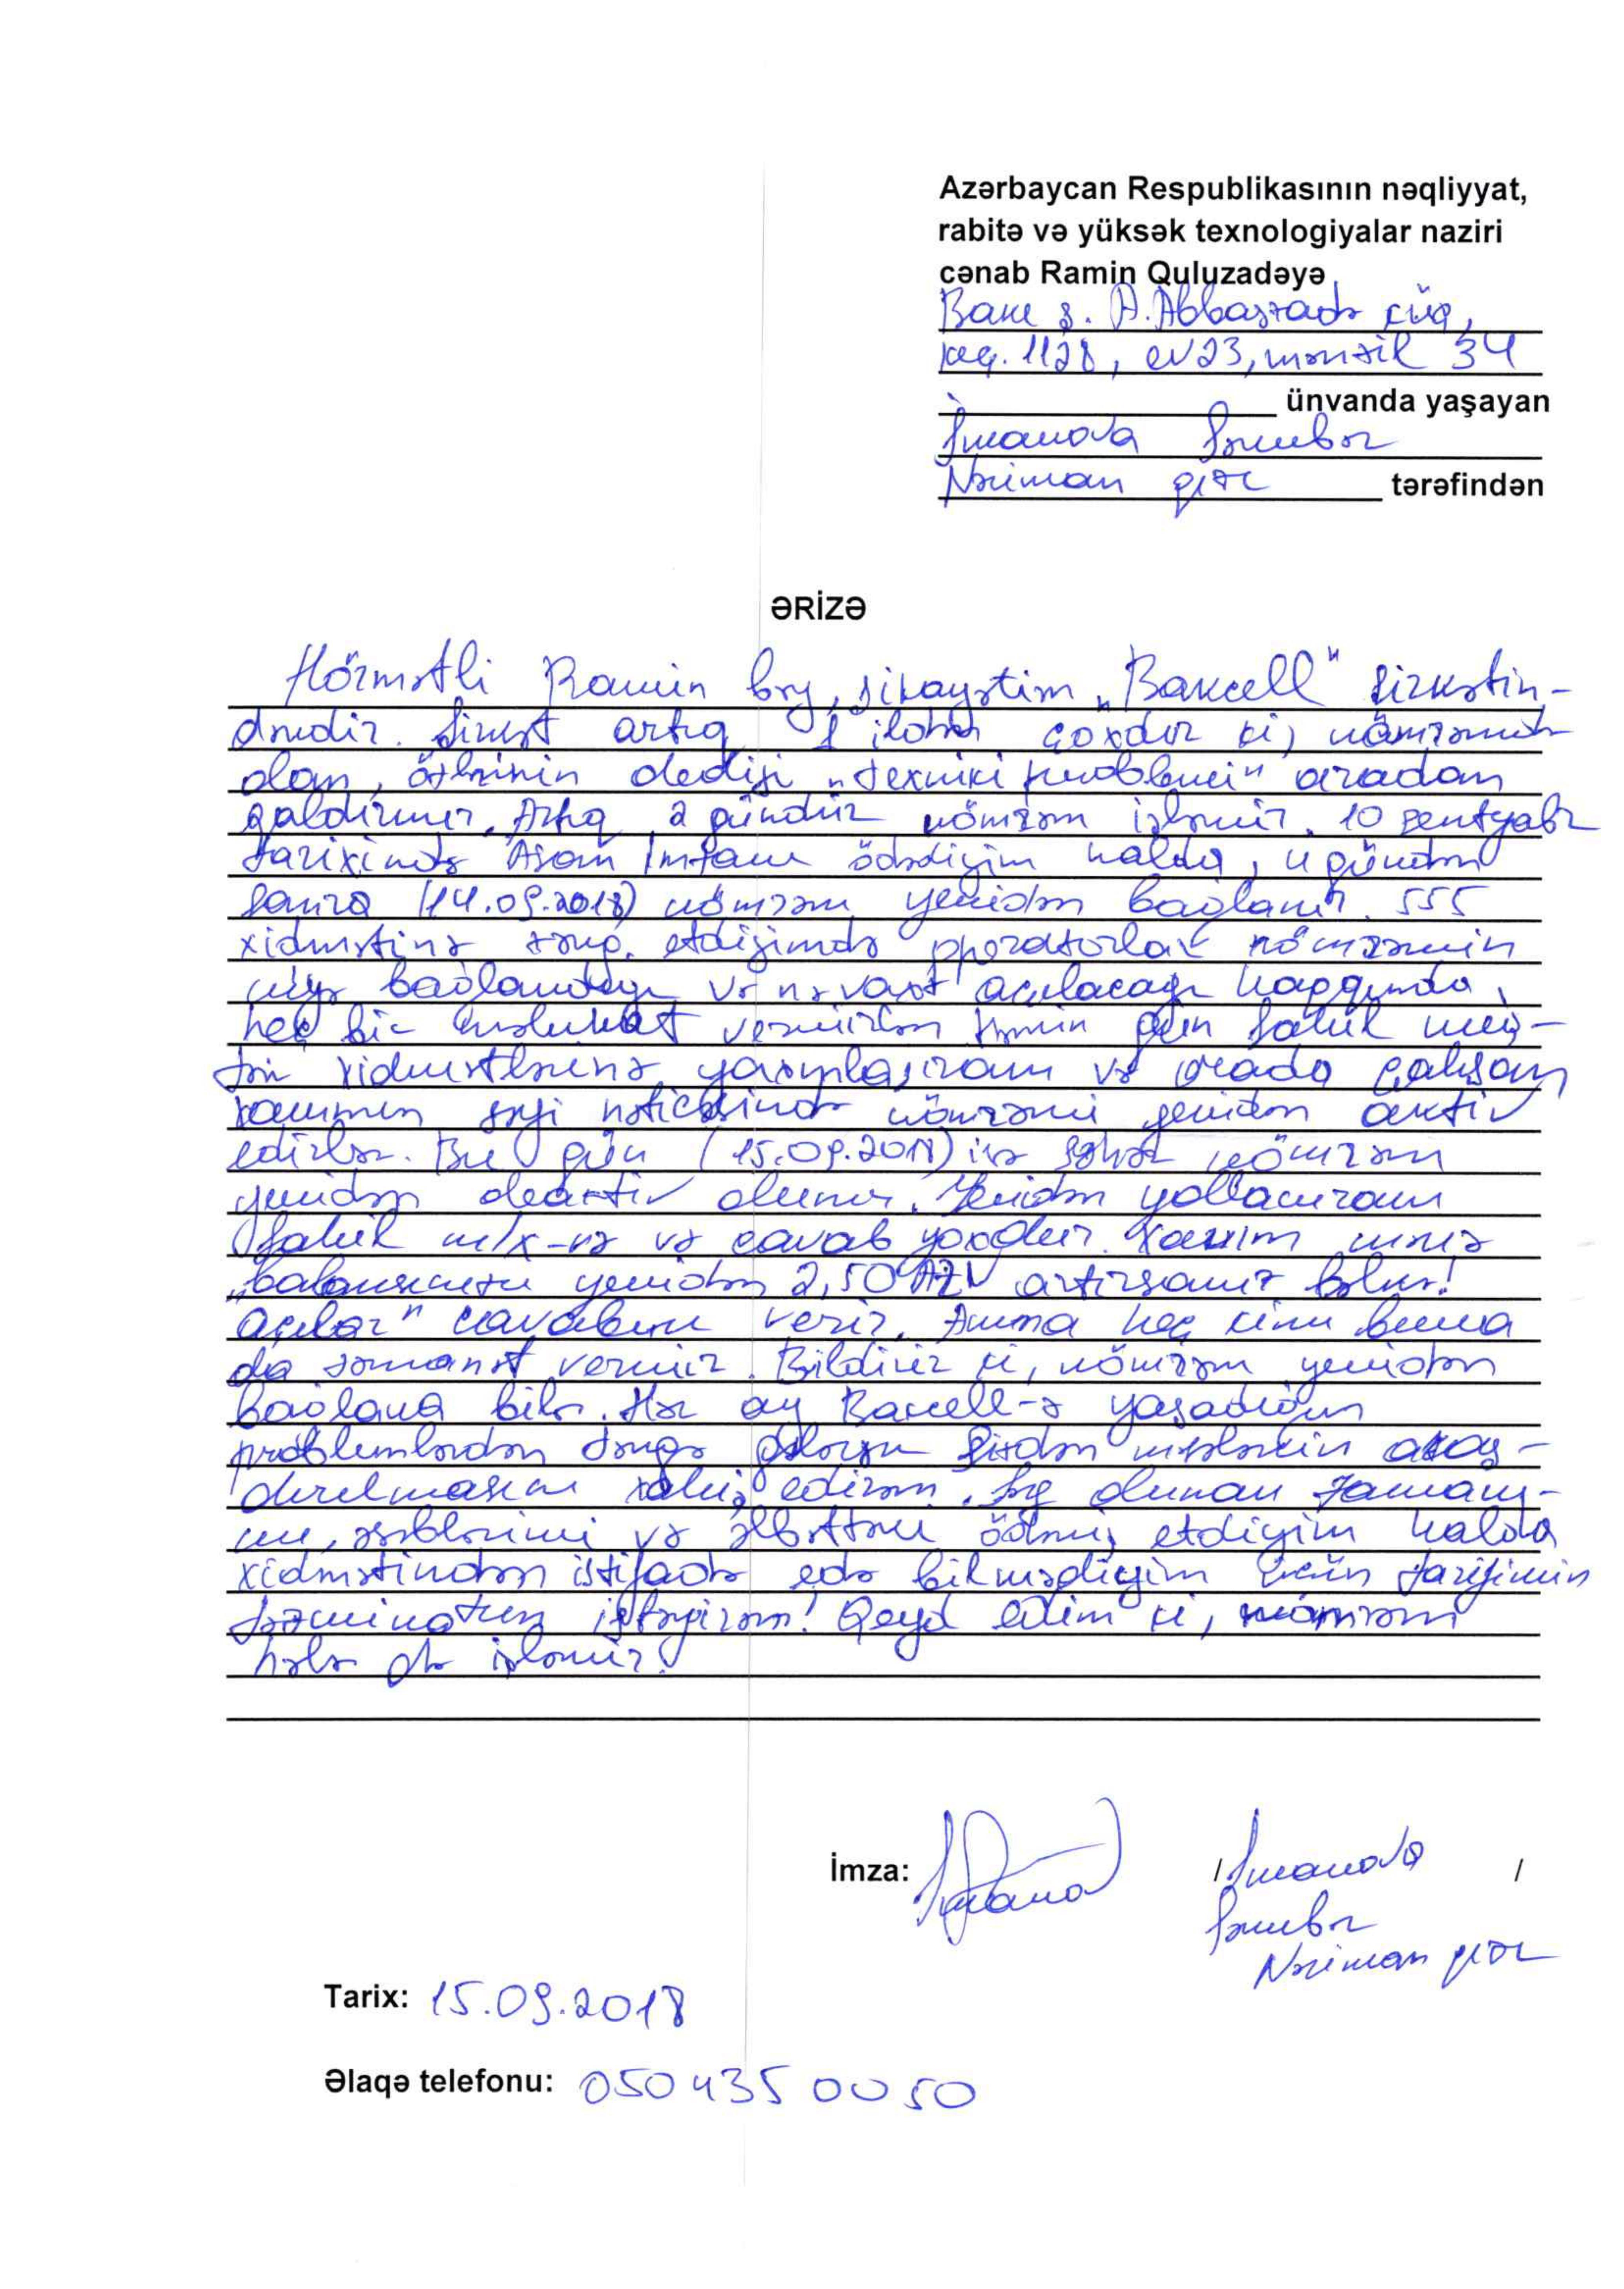 Azərbaycan Respublikasının nəqliyyat,
rabitə və yüksək texnologiyalar naziri
cənab Ramin Quluzadəyə
Bakı ş. A.Abbaszadə küç,
keç. 1128, ev 23, mənzil 34
ünvanda yaşayan
İmanova Sənubər
Nəriman qızı tərəfindən
ƏRİZƏ
Hörmətli Ramin bəy, şikayətim "Bakcell" şirkətin-
dəndir. Şirkət artıq 1 ildən çoxdur ki, nömrəmdə
olan, özlərinin dediyi "texniki problemi" aradan
qaldırmır. Artıq 2 gündür nömrəm işləmir. 10 sentyabr
tarixində Asan İmzanı ödədiyim halda, 4 gündən
sonra (14.09.2018) nömrəm yenidən bağlanır. 555
xidmətinə zəng etdiyimdə operatorlar nömrəmin
niyə bağlandığı və nə vaxt açılacağı haqqında
heç bir məlumat vermirlər. Həmin gün Sahil müş-
təri xidmətlərinə yaxınlaşıram və orada çalışan
xanımın səyi nəticəsində nömrəmi yenidən aktiv
edirlər. Bu gün (15.09.2018) isə səhər nömrəm
yenidən deaktiv olunur. Yenidən yollanıram
Sahil m/x-nə və cavab yoxdur. Xanım mənə
"balansınızı yenidən 2,50 AZN artırsanız bəlkə
açılar" cavabını verir. Amma heç kim buna
da zəmanət vermir. Bildirir ki, nömrəm yenidən
bağlana bilər. Hər ay Bakcell-ə yaşadığım
problemlərdən təngə gəlmişəm Sizdən məsələnin araş-
dırılmasını xahiş edirəm. Sərf olunan zamanı-
mı, əsəblərimi və əlbəttəki ödəniş etdiyim halda
xidmətindən istifadə edə bilmədiyim üçün tarifimin
təzminatını istəyirəm! Qeyd edim ki, nömrəm
hələ də işləmir!
İmza: / İmanova /
Sənubər
Nəriman qızı
Tarix: 15.09.2018
Əlaqə telefonu: 050 435 00 50